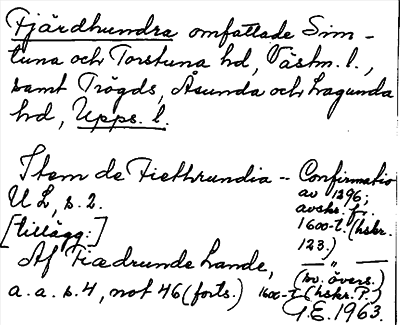 Fjärdhundra omfattade Sim-
tuna och Torstuna hd, Västm. l.,
samt Trögds, Åsunda och Lagunda
hd, Upps. l.
Item de Fiethrundia -- Confirmatio
UL, s. 2.
av 1296;
avskr. fr.
1600-t. (hskr.
123.)
[tillägg:]
Af Fiædrunde Lande, — " —
(sv. övers.)
a. a. s. 4, not 46 (forts.) 1600-t. (hskr. P.)
G.E. 1963.